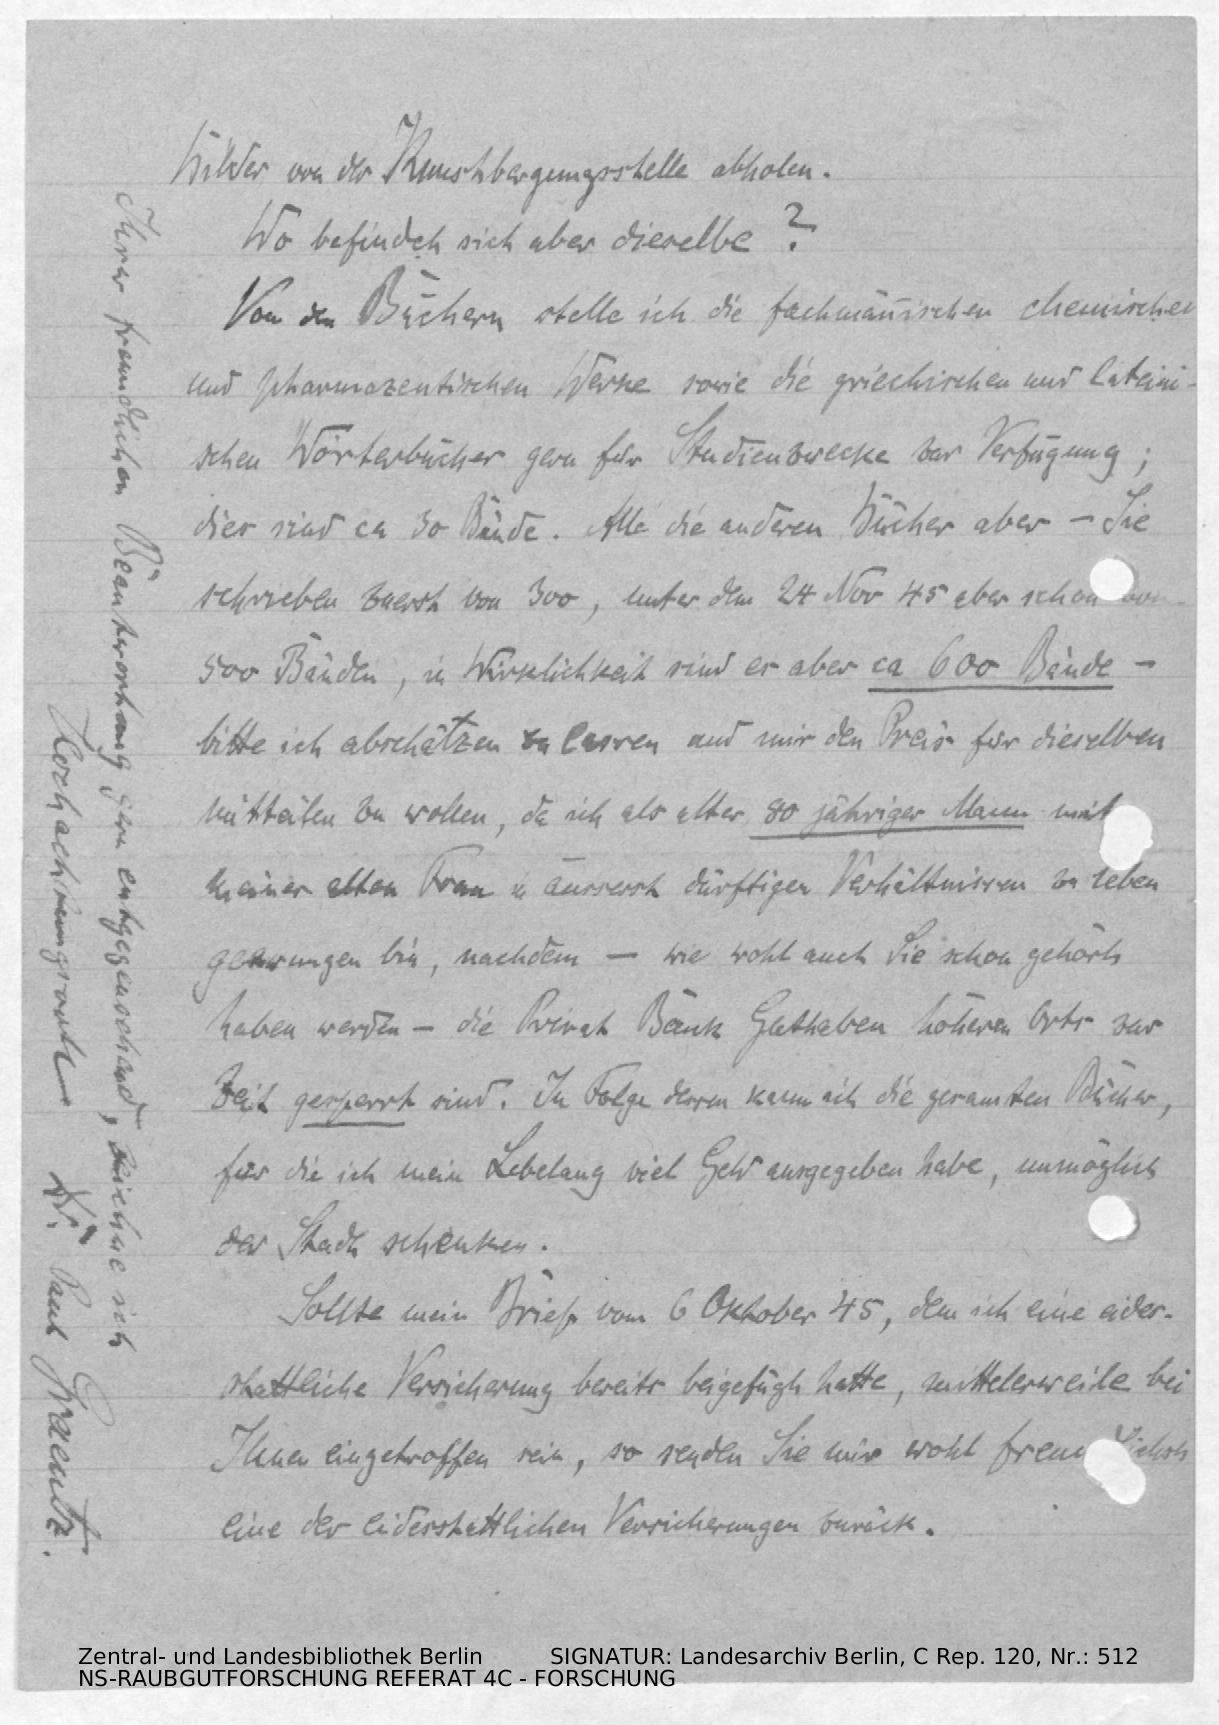 Bilder von der Kunstbergungsstelle abholen.
Wo befindet sich aber dieselbe?
Von den Büchern stelle ich die fachmännischen chemischen
und pharmazeutischen Werke sowie die griechischen und lateini-
schen Wörterbücher gern für Studienzwecke zur Verfügung;
dies sind ca 30 Bände. Alle die anderen Bücher aber – Sie
schrieben zuerst von 300, unter dem 24 Nov 45 aber schon von
500 Bänden, in Wirklichkeit sind es aber ca 600 Bände –
bitte ich abschätzen zu lassen und mir den Preis für dieselben
mitteilen zu wollen, da ich als alter 80 jähriger Mann mit
meiner alten Frau in äusserst dürftigen Verhältnissen zu leben
gezwungen bin, nachdem – wie wohl auch Sie schon gehört
haben werden – die Privat Bank Guthaben höheren Orts zur
Zeit gesperrt sind. In Folge dessen kann ich die gesamten Bücher,
für die ich mein Lebelang viel Geld ausgegeben habe, unmöglich
der Stadt schenken.
Sollte mein Brief vom 6 Oktober 45, dem ich eine eides-
stattliche Versicherung bereits beigefügt hatte, mittelerweile bei
Ihnen eingetroffen sein, so senden Sie mir wohl freundlichst
eine der eidesstattlichen Versicherungen zurück.
Ihrer freundlichen Beantwortung gern entgegensehend, zeichne ich
Hochachtungsvoll
Dr. Paul Graentz.
Zentral- und Landesbibliothek Berlin SIGNATUR: Landesarchiv Berlin, C Rep. 120, Nr.: 512
NS-RAUBGUTFORSCHUNG REFERAT 4C - FORSCHUNG